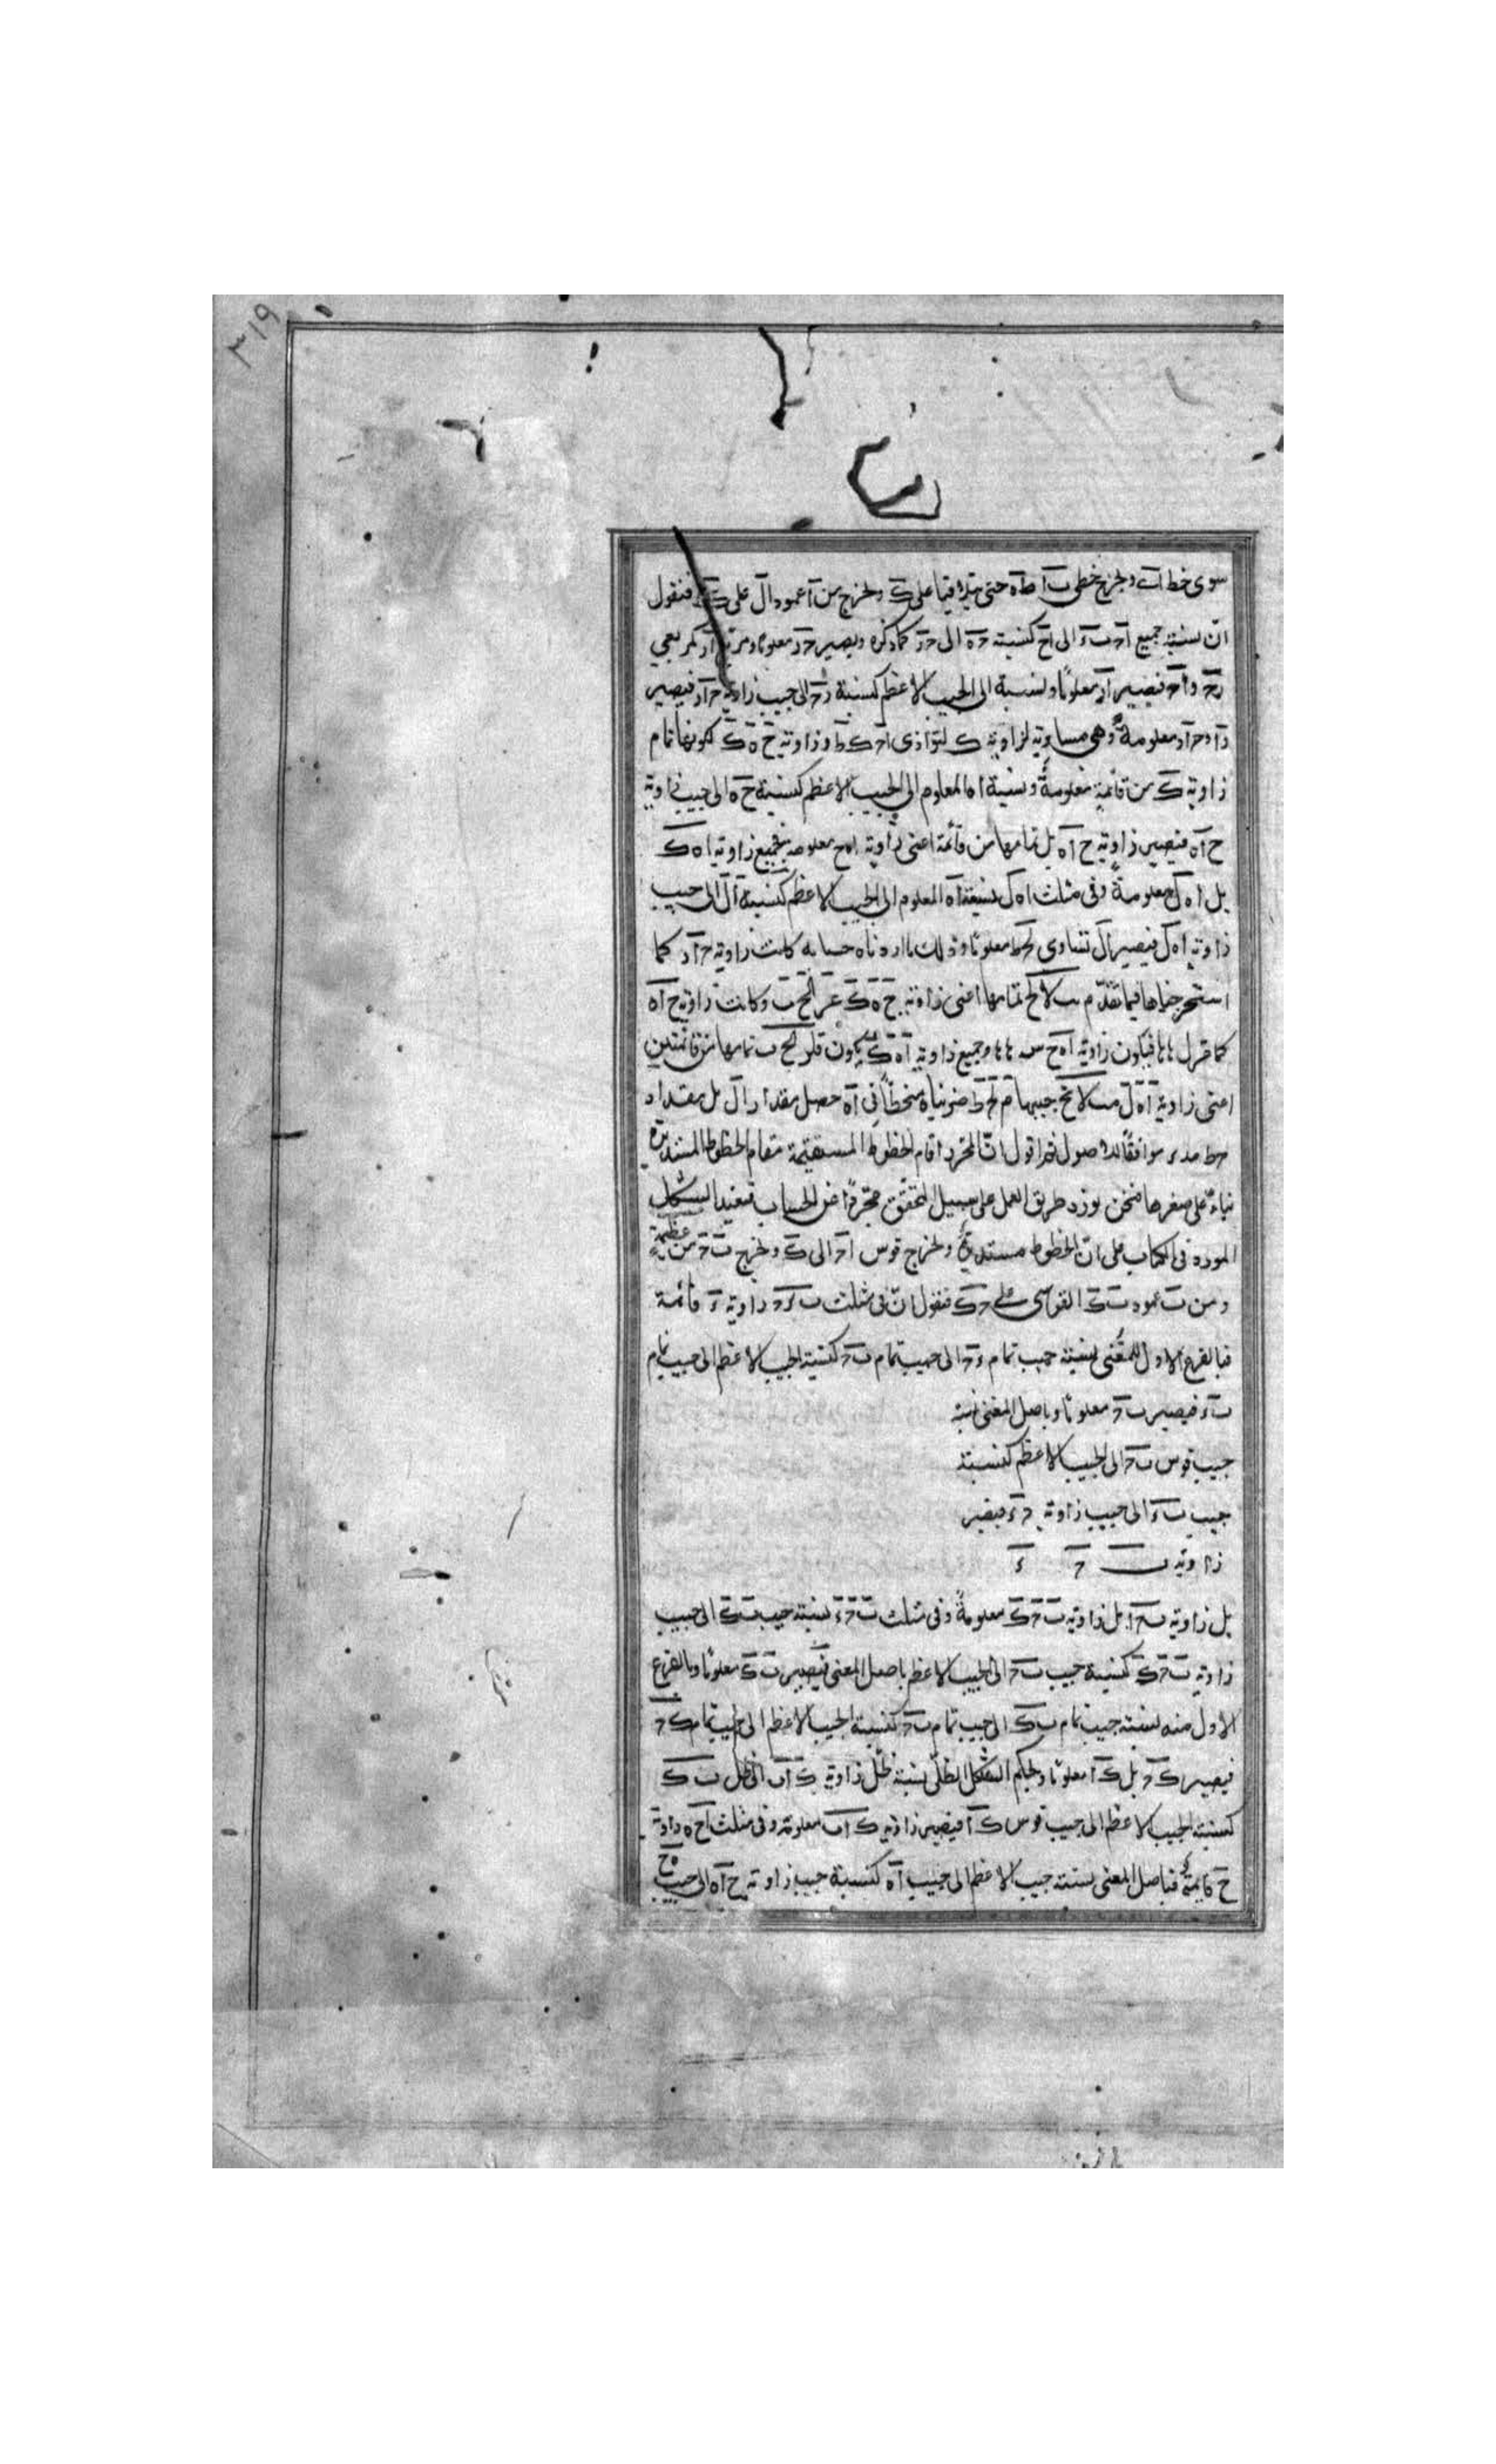 ٣١٩
سوى خط اب ونخرج خطى ب آ ط ه حتى يتلاقيا على ك ونخرج من آ عمود ال على ك ط فنقول
ان نسبة جميع اح ب ء الى اح كنسبة ح ه الى ح ر كما ذكره ويصير ح ر معلوما ومربع آر كمربعي
رح و اح فيصير آر معلومًا ونسبة الى الجيب الاعظم كنسبة رح الى جيب زاوية ح آر فيصير
زاوية ح آر معلومة وهى مساوية لزاوية ك لتوازى اح ك ط وزاوية ح ه ك لكونها تمام
زاوية ك من قائمة معلومة ونسبة اه المعلوم الى الجيب الاعظم كنسبة ح ه الى جيب زاوية
ح آه فيصير زاوية ح آه بل تمامها من قائمة اعنى زاوية اه ح معلومة فجميع زاوية اه ك
بل اه ل معلومة وفى مثلث اه ل نسبة اه المعلوم الى الجيب الاعظم كنسبة آل الى جيب
زاوية اه ل فيصير آل تساوى لح ط معلومًا وذلك ما اردناه حسابه كانت زاوية ح آر كما
استخرجناها فيما تقدم تمامها اعنى زاوية ح ه ك وكانت زاوية ح آه
فيكون زاوية اه ح وجميع زاوية آه ك يكون تمامها من قائمتين
اعنى زاوية آه ل جيبها ضربناه منحطًا فى آه حصل مقدار آل بل مقدار
موافقًا للاصول ثم اقول ان المحرر اقام الخطوط المستقيمة مقام الخطوط المستديرة
بناءً على صغرها فنحن نورد طريق العمل على سبيل التحقيق مجردًا عن الحساب فنعيد الشكل
المورد فى الكتاب على ان الخطوط مستديرة ونخرج قوس اح الى ك ونخرج ب ح من عظيمة
ومن ب عمود ب ك القوسى على ح ك فنقول ان فى مثلث ب ء ح زاوية ء قائمة
فبالفرع الاول للمغنى نسبة جيب تمام ء ح الى جيب تمام ب ح كنسبة الجيب الاعظم الى جيب تمام
ب ء فيصير ب ح معلومًا وباصل المغنى نسبة
جيب قوس ب ح الى الجيب الاعظم كنسبة
جيب ب ء الى جيب زاوية ح ء فيصير
زاوية ب ح ء
بل زاوية ب ح آ بل زاوية ب ح ك معلومة وفى مثلث ب ح ء نسبة جيب ب ك الى جيب
زاوية ب ح ك كنسبة جيب ب ح الى الجيب الاعظم باصل المغنى فيصير ب ك معلومًا وبالفرع
الاول منه نسبة جيب تمام ب ك الى جيب تمام ب ح كنسبة الجيب الاعظم الى جيب تمام ك ح
فيصير ك ح بل ك آ معلومًا وبحكم الشكل الظلى نسبة ظل زاوية ك اب الى ظل ب ك
كنسبة الجيب الاعظم الى جيب قوس ك آ فيصير زاوية ك اب معلومة وفى مثلث اح ه زاوية
ح قايمة فباصل المغنى نسبة جيب الاعظم الى جيب آه كنسبة جيب زاوية ح آه الى جيب ه ح